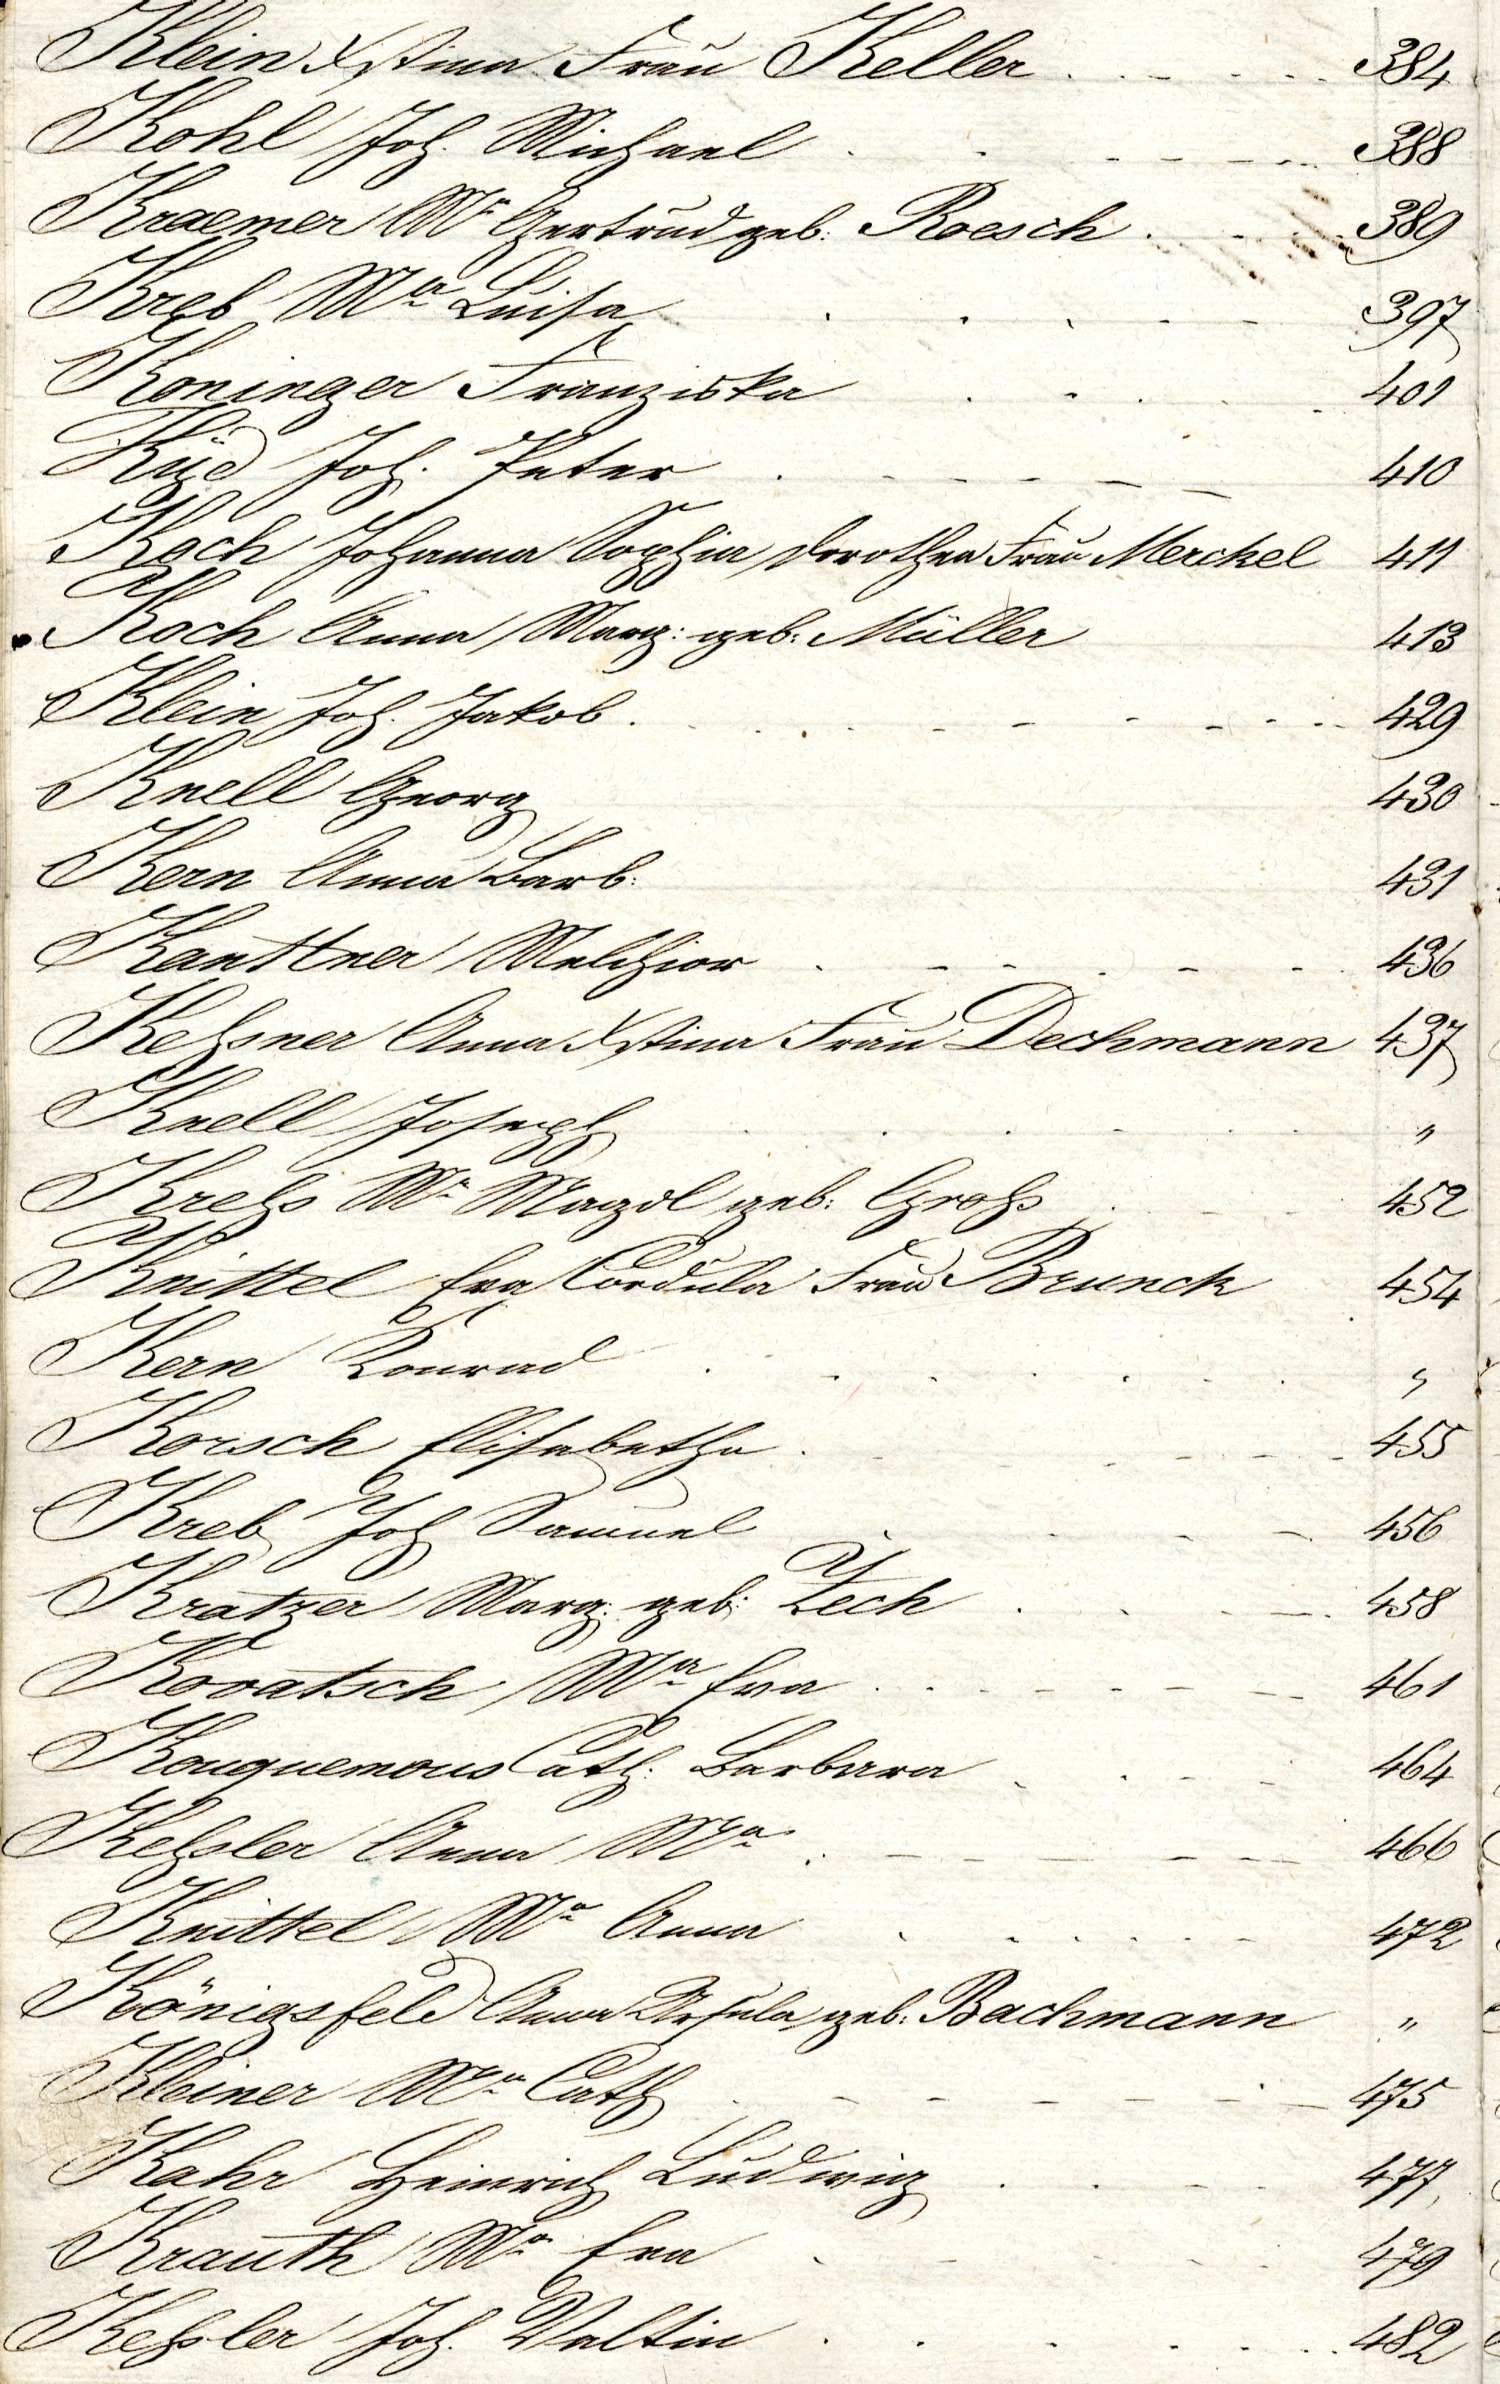 Klein Xstina Frau Keller 384
Kohl Joh. Michael 388
Kraemer Ma Gertrud geb: Roesch 389
Kreb Ma Luisa 397
Koninger Franziska 401
Küd Joh. Peter 410
Koch Johanna Sophia Dorothea Frau Merckel 411
Koch Anna Marg: geb: Müller 413
Klein Joh. Jakob 429
Knell Georg 430
Kern Anna Barb: 431
Kanttner Melchior 436
Keßner Anna Xstina Frau Dechmann 437
Knell Joseph "
Kreß Ma Magdl geb: Groß 452
Knittel Eva Cordula Frau Brunck 454
Kern Konrad "
Korsch Elisabetha 455
Kreb Joh Samuel 456
Kratzer Marg: geb: Zech 458
Kovatsch Ma Eva 461
Kouquemous Cath: Barbara 464
Keßler Anna Ma 466
Knittel Ma Anna 472
Königsfeld Anna Ursula geb: Bachmann "
Kleiner Ma Cath 475
Kahr Heinrich Ludwig 477
Krauth Ma Eva 479
Keßler Joh. Valtin 482